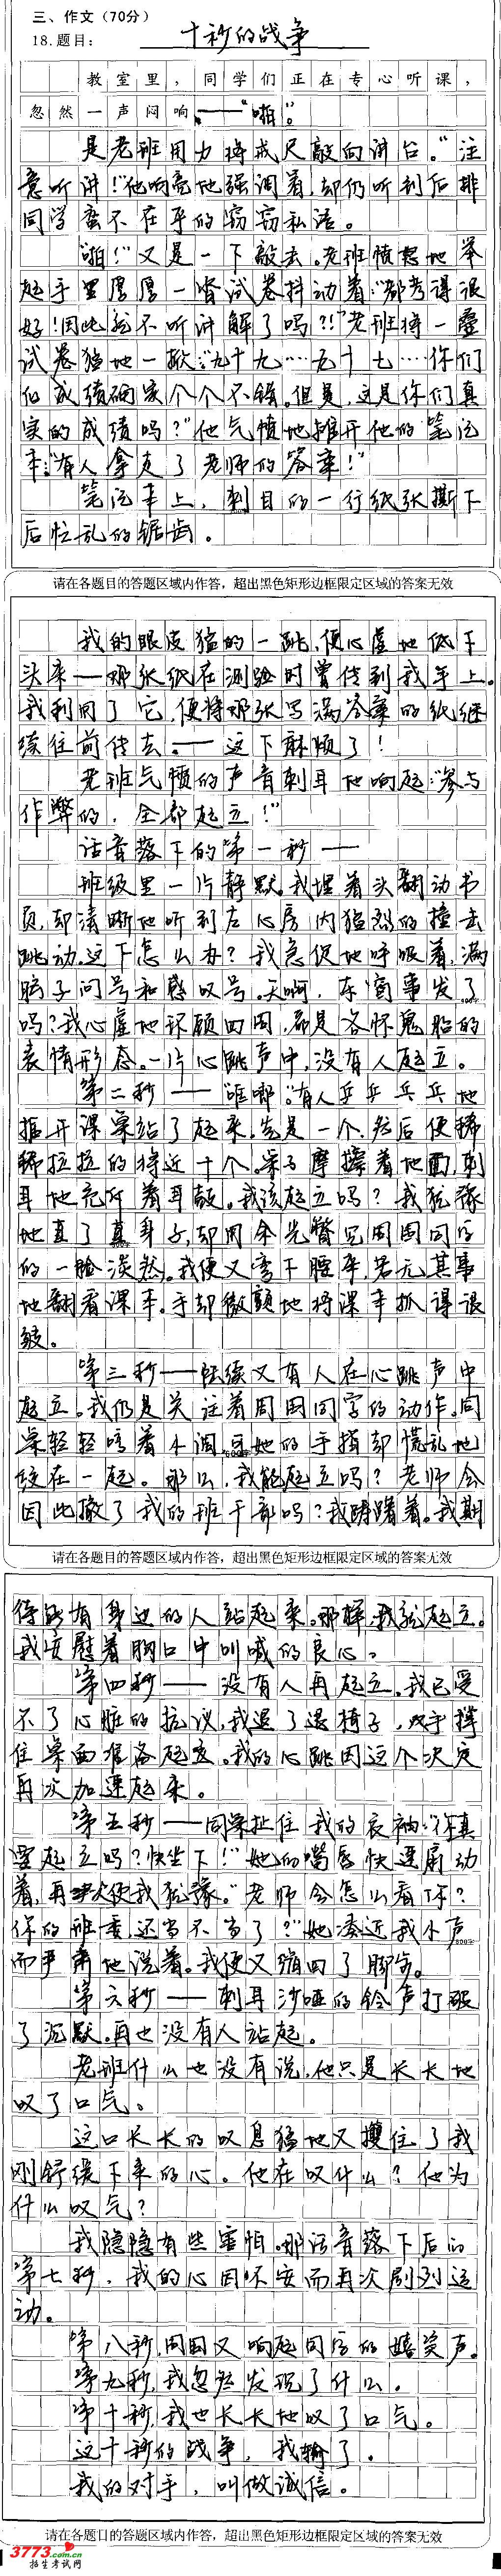 三、作文（70分）
18.题目：十秒的战争
教室里，同学们正在专心听课，
忽然一声闷响——“啪”。
是老班用力将戒尺敲向讲台。“注
意听讲！”他响亮地强调着，却仍听到后排
同学蛮不在乎的窃窃私语。
“啪！”又是一下敲击。老班愤怒地举
起手里厚厚一沓试卷抖动着：“都考得很
好！因此就不听讲解了吗？！”老班将一叠
试卷猛地一掀：“九十九……九十七……你们
的成绩确实个个不错。但是，这是你们真
实的成绩吗？”他气愤地摊开他的笔记
本：“有人拿走了老师的答案！”
笔记本上，刺目的一行纸张撕下
后忙乱的锯齿。
请在各题目的答题区域内作答，超出黑色矩形边框限定区域的答案无效
我的眼皮猛的一跳，便心虚地低下
头来——那张纸在测验时曾传到我手上。
我利用了它，便将那张写满答案的纸继
续往前传去。——这下麻烦了！
老班气愤的声音刺耳地响起：“参与
作弊的，全部起立！”
话音落下的第一秒——
班级里一片静默。我埋着头翻动书
页，却清晰地听到左心房内猛烈的撞击
跳动。这下怎么办？我急促地呼吸着，满
脑子问号和感叹号。天啊，东窗事发了
吗？我心虚地环顾四周，都是各怀鬼胎的
表情形态。一片心跳声中，没有人起立。
第二秒——“哐啷。”有人乒乒乓乓地
推开课桌站了起来。先是一个，然后便稀
稀拉拉的将近十个。桌子摩擦着地面，刺
耳地充斥着耳鼓。我该起立吗？我犹豫
地直了直身子，却用余光瞥见周围同学
的一脸淡然。我便又弯下腰来，若无其事
地翻看课本。手却微颤地将课本抓得很
皱。
第三秒——陆续又有人在心跳声中
起立。我仍是关注着周围同学的动作。同
桌轻轻哼着小调，可她的手指却慌乱地
绞在一起。那么，我能起立吗？老师会
因此撤了我的班干部吗？我踌躇着。我期
请在各题目的答题区域内作答，超出黑色矩形边框限定区域的答案无效
待能有身边的人站起来。那样，我就起立。
我安慰着胸口中叫喊的良心。
第四秒——没有人再起立。我已受
不了心脏的抗议，我退了退椅子，双手撑
住桌面准备起立。我的心跳因这个决定
再次加速起来。
第五秒——同桌扯住我的衣袖：“你真
要起立吗？快坐下！”她的嘴唇快速扇动
着，再次使我犹豫。“老师会怎么看你？
你的班委还当不当了？”她凑近我小声
而严肃地说着。我便又缩回了脚步。
第六秒——刺耳沙哑的铃声打破
了沉默。再也没有人站起。
老班什么也没有说，他只是长长地
叹了口气。
这口长长的叹息猛地又攫住了我
刚舒缓下来的心。他在叹什么？他为
什么叹气？
我隐隐有些害怕。那话音落下后的
第七秒，我的心因不安而再次剧烈运
动。
第八秒，周围又响起同学的嬉笑声。
第九秒，我忽然发现了什么。
第十秒，我也长长地叹了口气。
这十秒的战争，我输了。
我的对手，叫做诚信。
请在各题目的答题区域内作答，超出黑色矩形边框限定区域的答案无效
3773.com.cn
招生考试网